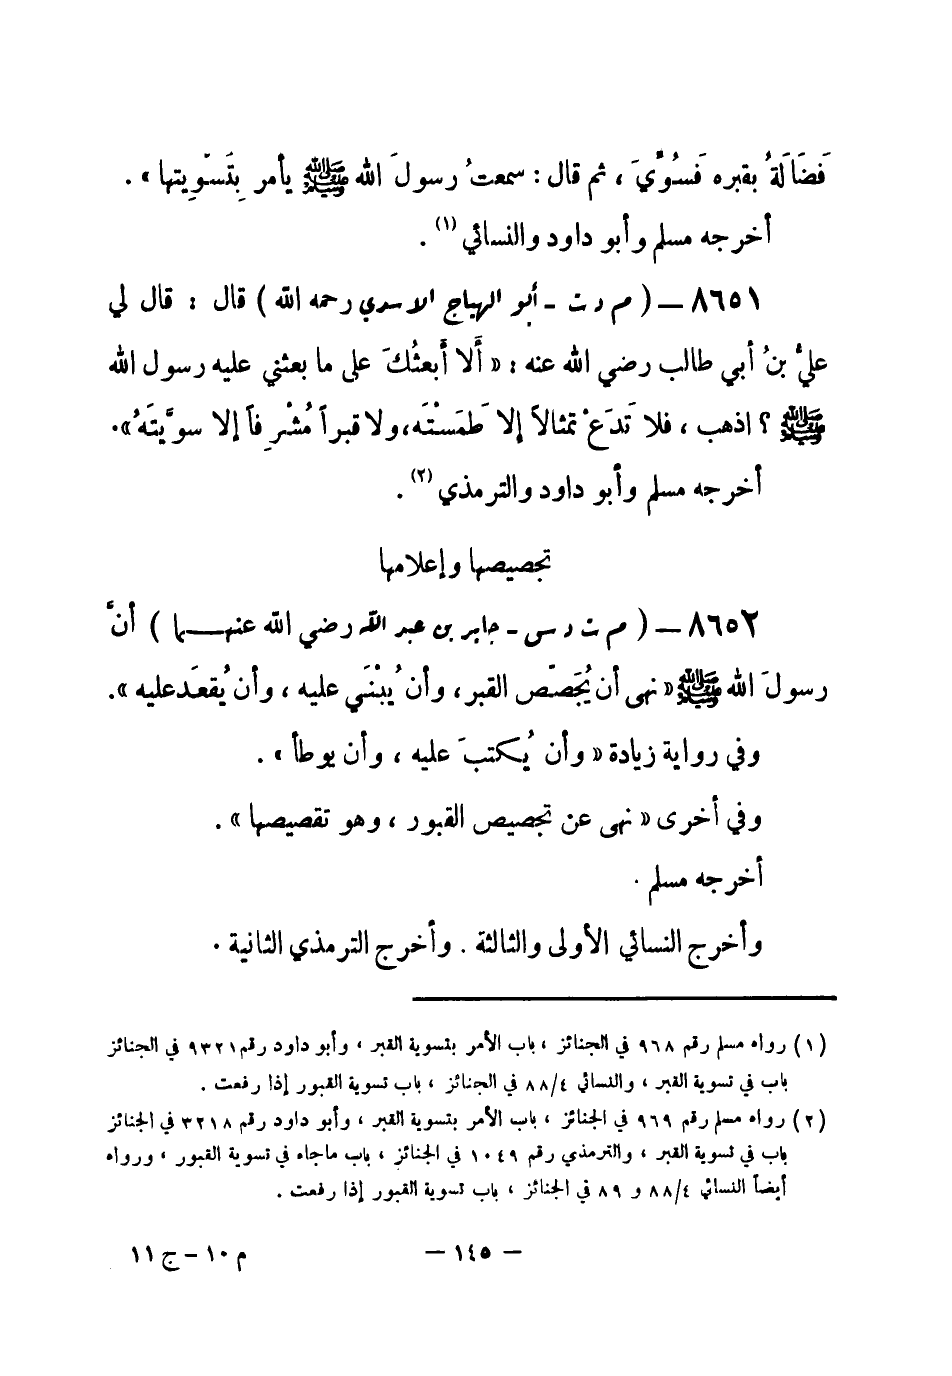 فَضَالَةُ بقبره فَسُوِّيَ ، ثم قال : سمعتُ رسولَ الله ﷺ يأمر بِتَسْوِيتها » .
أخرجه مسلم وأبو داود والنسائي (١) .
٨٦٥١ – ( م د ت - أبو الهياج الاسدي رحمه الله ) قال : قال لي
عليُّ بنُ أبي طالب رضي الله عنه : « أَلا أَبعثُكَ على ما بعثني عليه رسول الله
ﷺ ؟ اذهب ، فلا تَدَعْ تمثالاً إلا طَمَسْتَه، ولا قبراً مُشْرِفاً إلا سوَّيتَهُ ».
أخرجه مسلم وأبو داود والترمذي (٢) .
تجصيصها وإعلامها
٨٦٥٢ – ( م ت د س - جابر بن عبد الله رضي الله عنهما ) أنَّ
رسولَ الله ﷺ « نهى أن يُجَصَّص القبر، وأن يُبْنَى عليه ، وأن يُقعَد عليه ».
وفي رواية زيادة « وأن يُكتبَ عليه ، وأن يوطأ » .
وفي أخرى « نهى عن تجصيص القبور ، وهو تقصيصها » .
أخرجه مسلم .
وأخرج النسائي الأولى والثالثة . وأخرج الترمذي الثانية .
(١) رواه مسلم رقم ٩٦٨ في الجنائز ، باب الأمر بتسوية القبر ، وأبو داود رقم ٩٣٢١ في الجنائز
باب في تسوية القبر ، والنسائي ٨٨/٤ في الجنائز ، باب تسوية القبور إذا رفعت .
(٢) رواه مسلم رقم ٩٦٩ في الجنائز ، باب الأمر بتسوية القبر ، وأبو داود رقم ٣٢١٨ في الجنائز
باب في تسوية القبر ، والترمذي رقم ١٠٤٩ في الجنائز ، باب ماجاء في تسوية القبور ، ورواه
أيضاً النسائي ٨٨/٤ و ٨٩ في الجنائز ، باب تسوية القبور إذا رفعت .
– ١٤٥ – م ١٠ - ج ١١